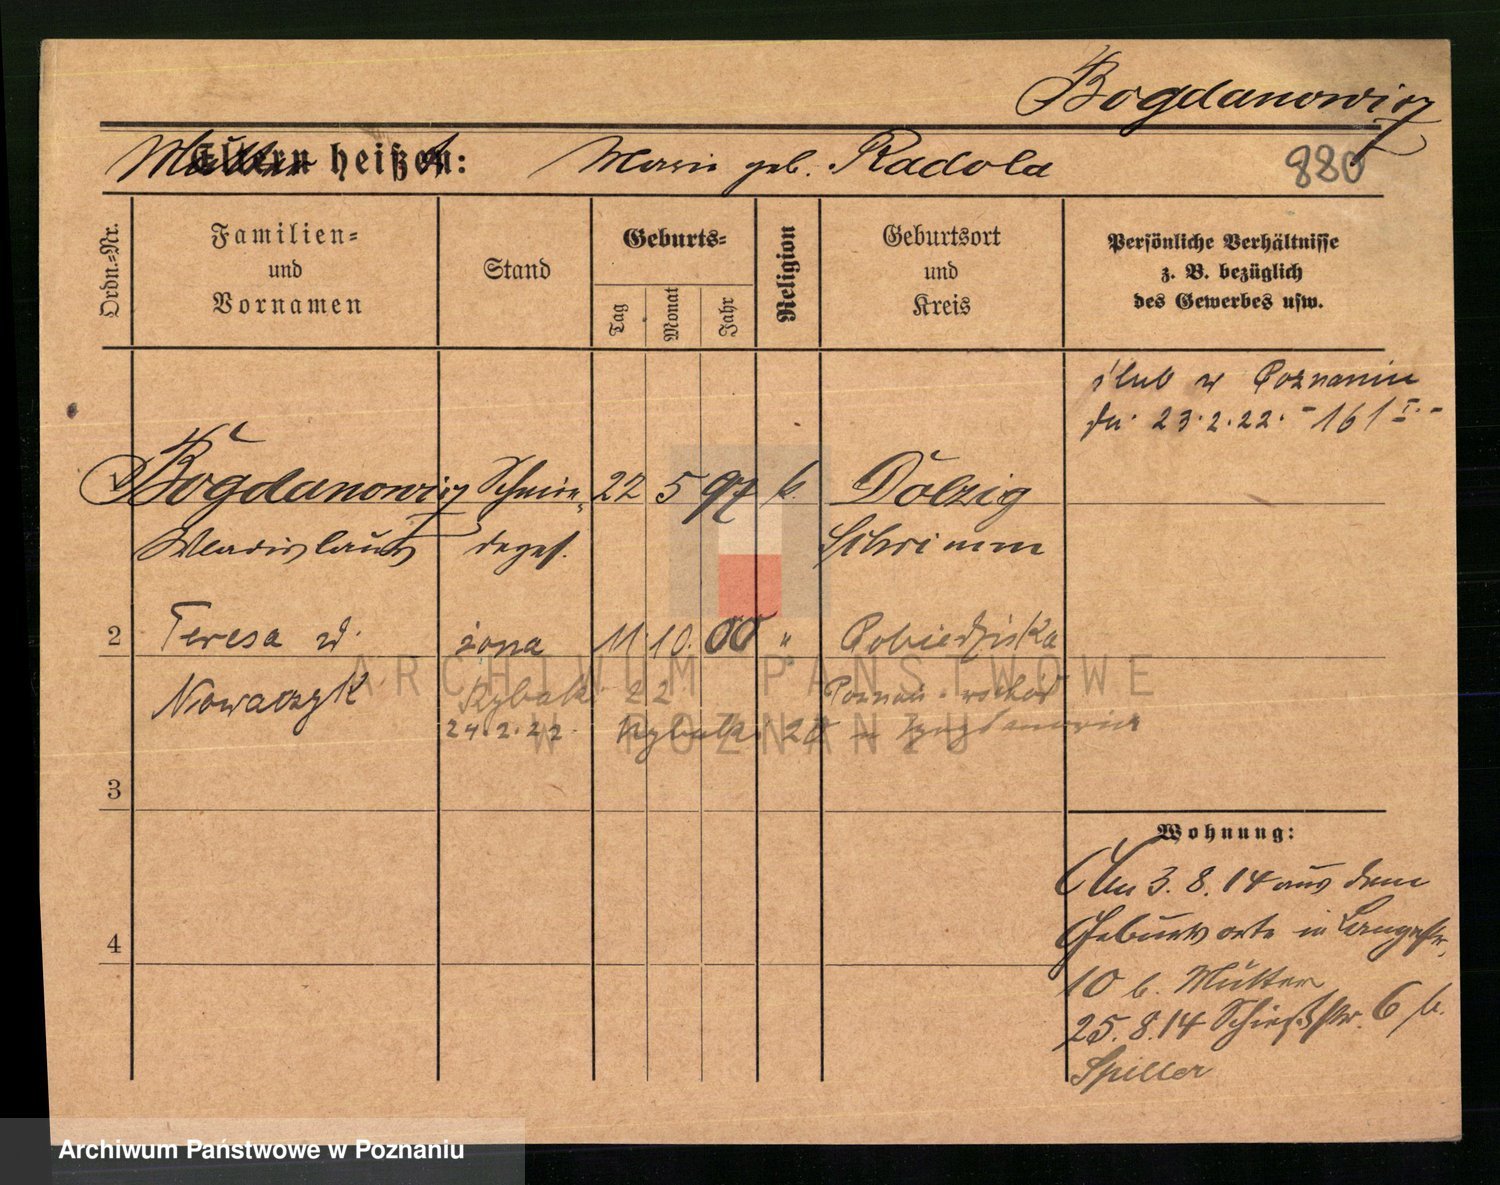 Bogdanowicz
Mutter heißt: Marie geb. Radola
880
Ordn.-Nr.
Familien-
und
Vornamen
Stand
Geburts-
Tag
Monat
Jahr
Religion
Geburtsort
und
Kreis
Persönliche Verhältnisse
z. B. bezüglich
des Gewerbes usw.
ślub w Poznaniu
dn. 23.2.22. - 161 I.-
Bogdanowicz Schmie- 22 5 97 k. Dolzig
Wladislaus deges. Schrimm
2 Teresa zd. żona 11. 10. 00 " Pobiedziska
Nowaczyk Rybaki 22 Poznań - wschód
24.2.22. Rybaki 20
3
4
Wohnung:
Am 3.8.14 aus dem
Geburtsorte in Langestr.
10 b. Mutter
25.8.14 Schießstr. 6 b.
Spiller
ARCHIWUM PAŃSTWOWE
W POZNANIU
Archiwum Państwowe w Poznaniu